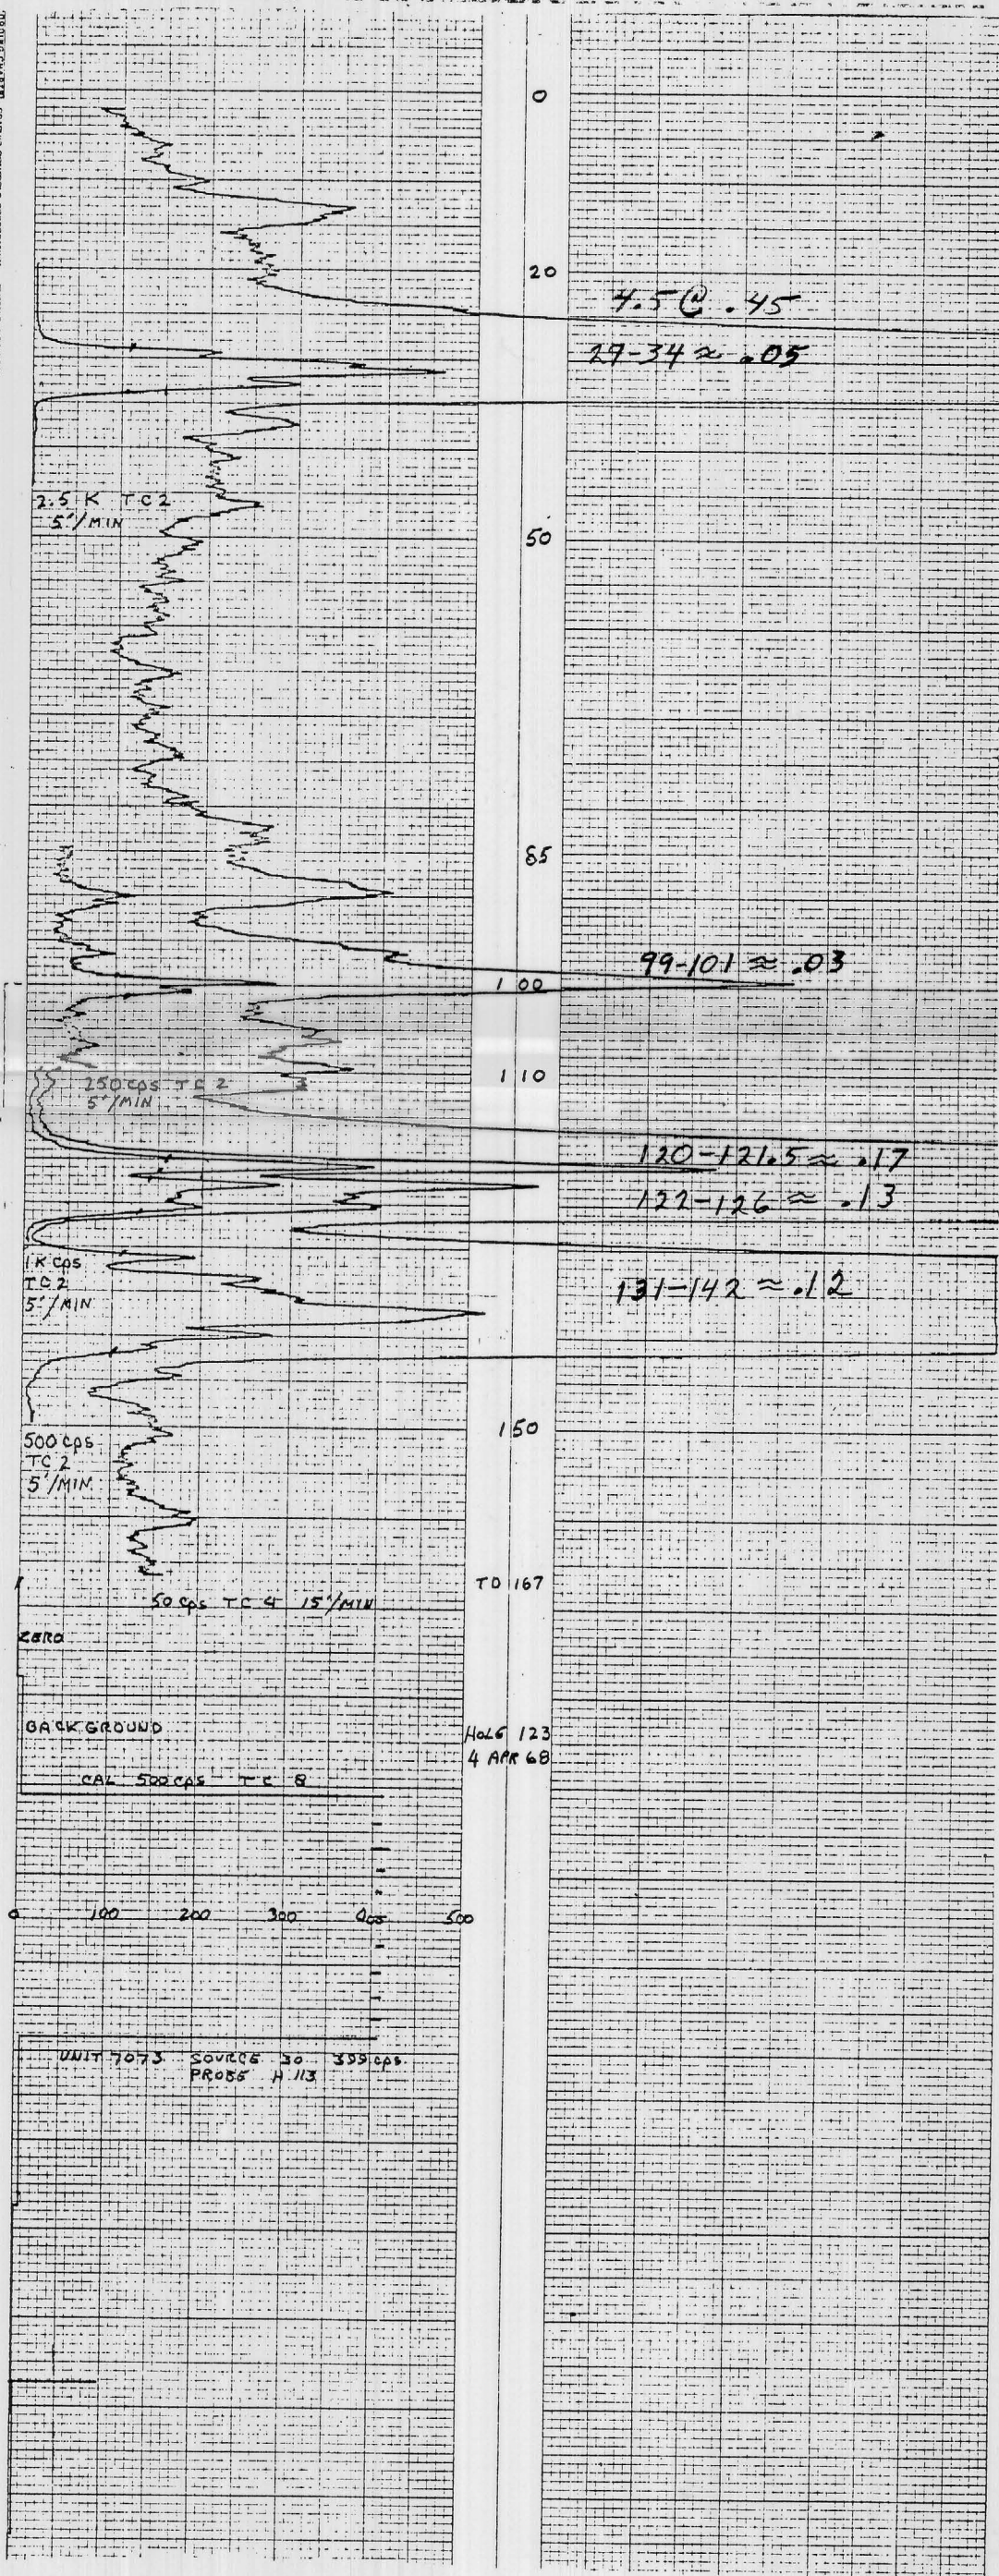 0
20
4.5 @ .45
29-34 ≈ .05
2.5 K TC2
5'/MIN
50
85
99-101 ≈ .03
100
110
250 cps TC 2
5'/MIN
120-121.5 ≈ .17
122-126 ≈ .13
1K cps
TC2
5'/MIN
131-142 ≈ .12
150
500 cps
TC 2
5'/MIN
TD 167
50 cps TC 4 15'/MIN
ZERO
BACKGROUND
HOLE 123
4 APR 68
CAL 500 cps TC 8
0 100 200 300 400 500
UNIT 7073 SOURCE 30 399 cps
PROBE H 113